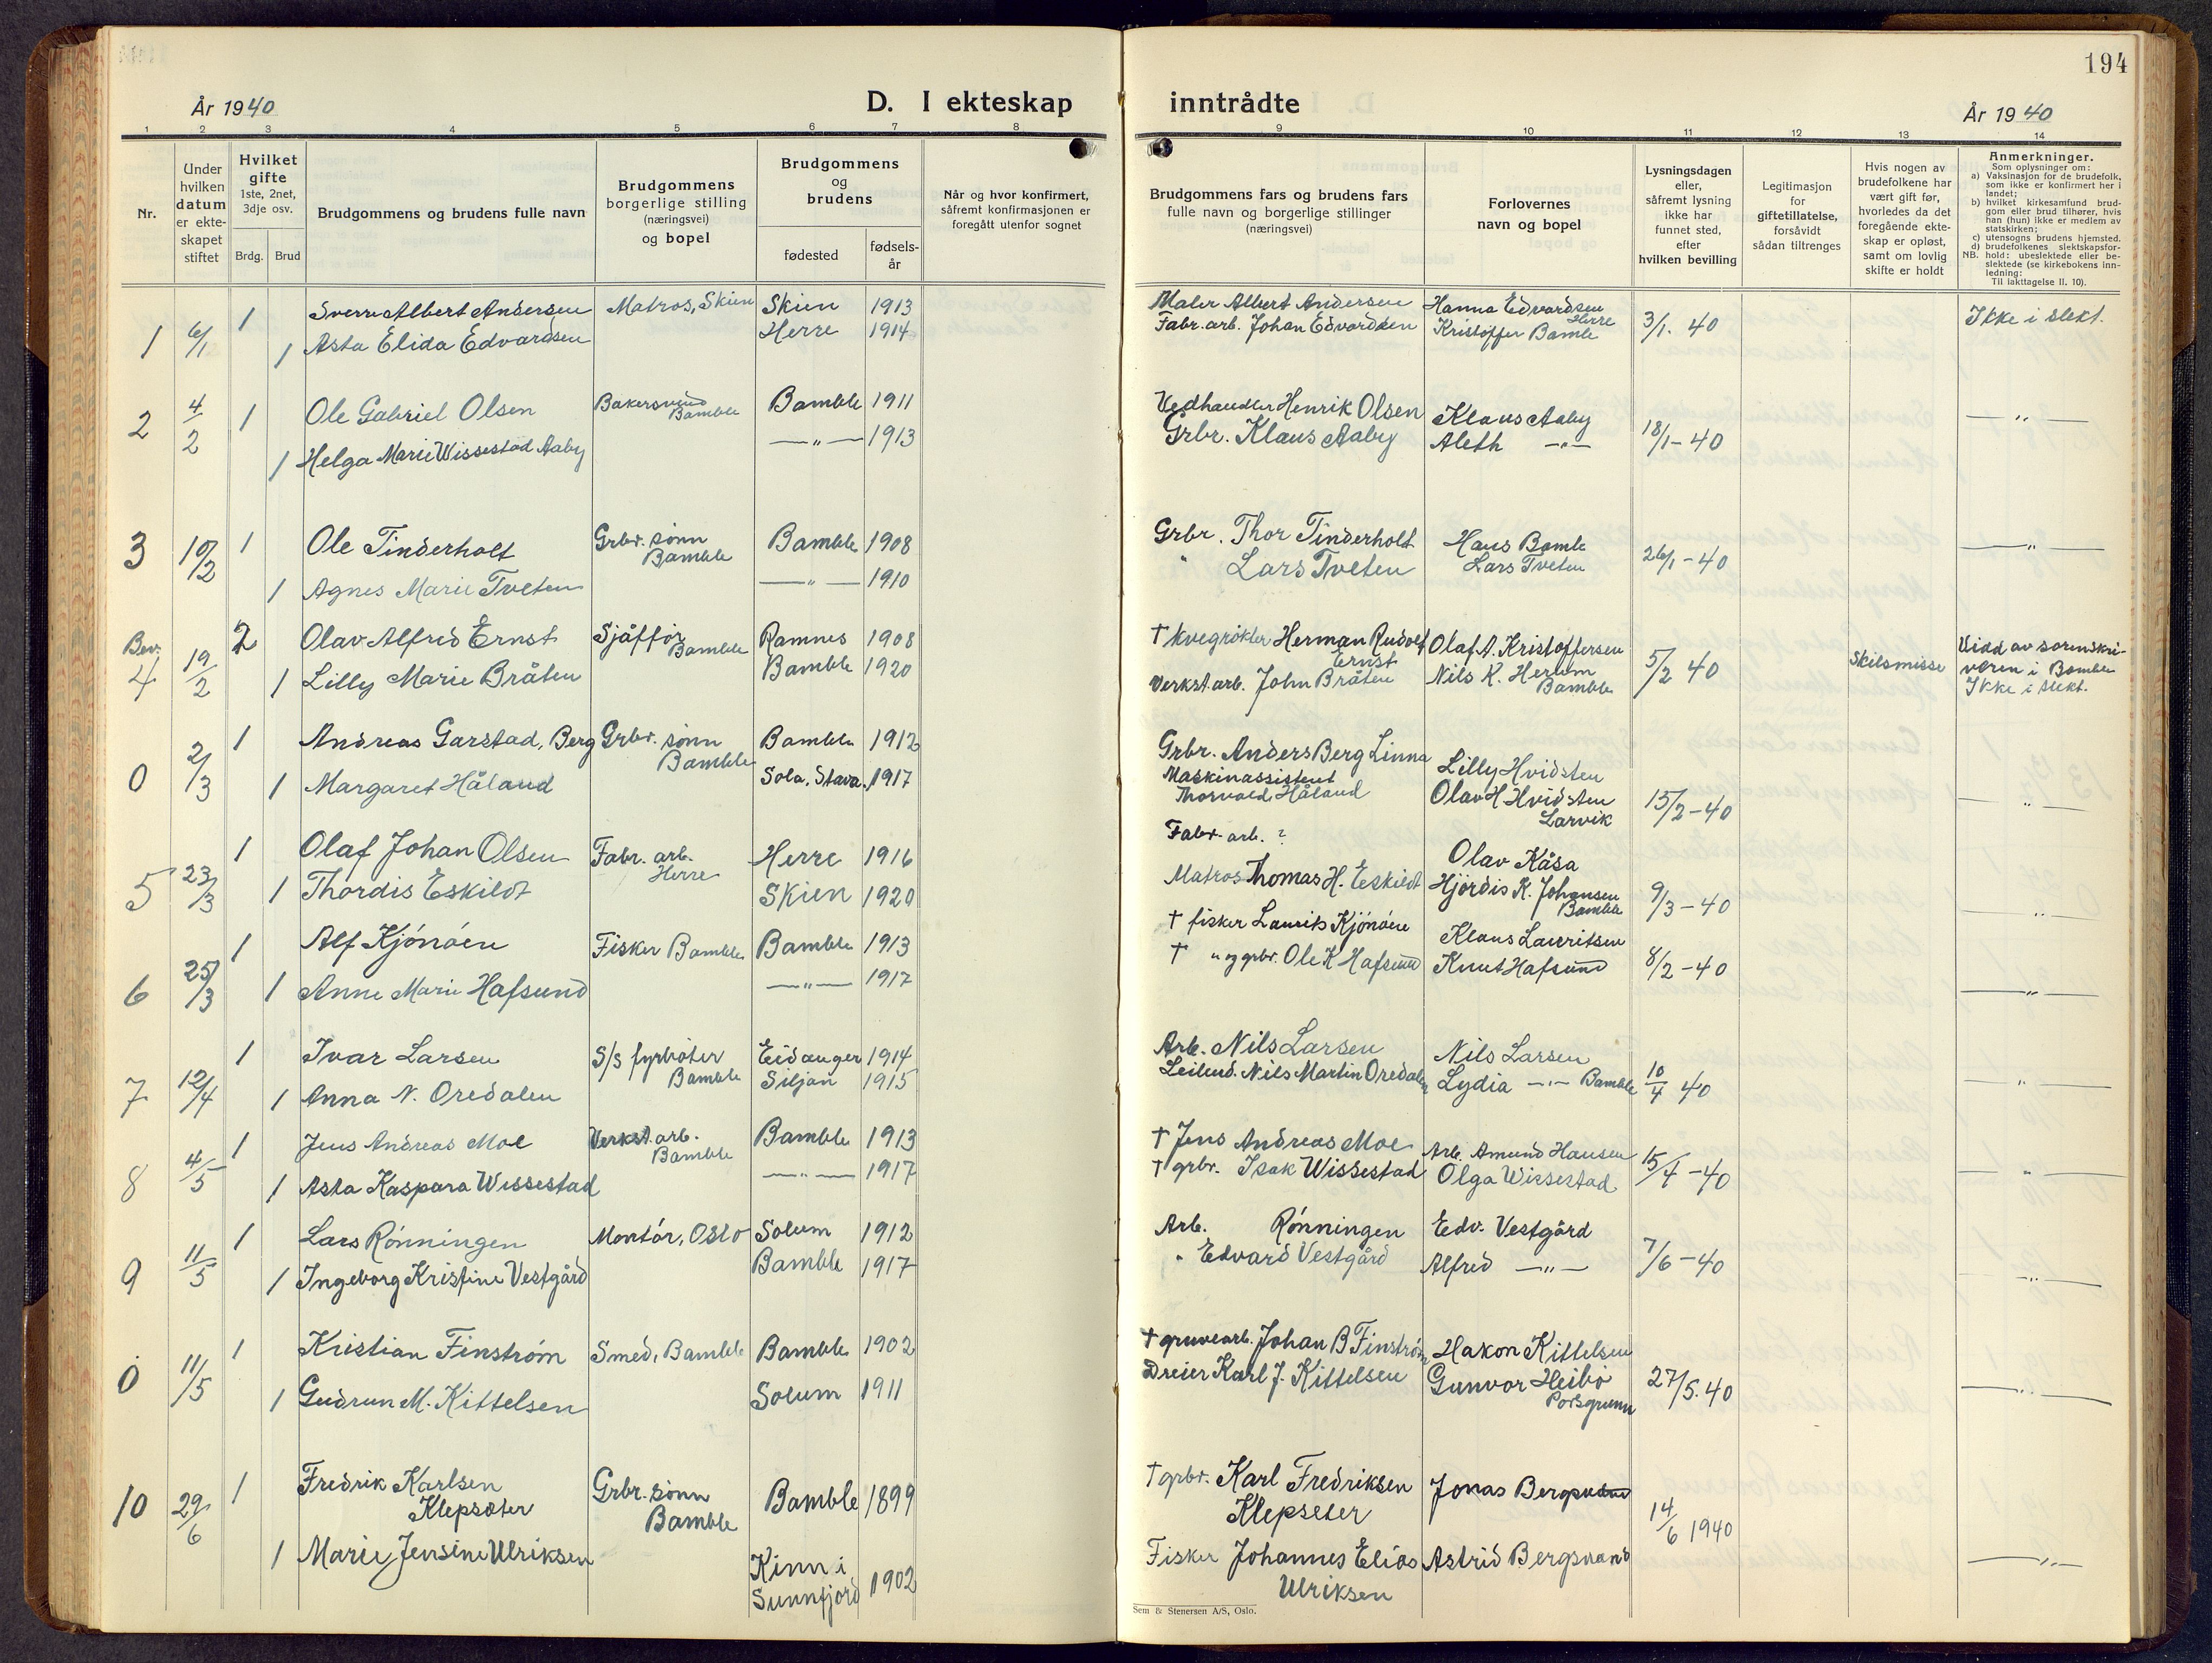 194
År 1940
D. I ekteskap inntrådte
År 1940
1 2 3 4 5 6 7 8 9 10 11 12 13 14
Nr.
Under
hvilken
datum
er ekte-
skapet
stiftet
Hvilket
gifte
1ste, 2net,
3dje osv.
Brdg. Brud
Brudgommens og brudens fulle navn
Brudgommens
borgerlige stilling
(næringsvei)
og bopel
Brudgommens
og
brudens
fødested
fødsels-
år
Når og hvor konfirmert,
såfremt konfirmasjonen er
foregått utenfor sognet
Brudgommens fars og brudens fars
fulle navn og borgerlige stillinger
(næringsvei)
Forlovernes
navn og bopel
Lysningsdagen
eller,
såfremt lysning
ikke har
funnet sted,
efter
hvilken bevilling
Legitimasjon
for
giftetillatelse,
forsåvidt
sådan tiltrenges
Hvis nogen av
brudefolkene har
vært gift før,
hvorledes da det
foregående ekte-
skap er opløst,
samt om lovlig
skifte er holdt
Anmerkninger.
Som oplysninger om:
a) Vaksinasjon for de brudefolk,
som ikke er konfirmert her i
landet;
b) hvilket kirkesamfund brud-
gom eller brud tilhører, hvis
han (hun) ikke er medlem av
statskirken;
c) utensogns brudens hjemsted.
d) brudefolkenes slektskapsfor-
NB. hold: ubeslektede eller be-
slektede (se kirkebokens inn-
ledning:
Til iakttagelse II. 10).
1 6/1 1 Sverre Albert Andersen Matros, Skien Skien 1913 Maler Albert Andersen Hanna Edvardsen 3/1. 40 Ikke i slekt.
1 Asta Elida Edvardsen Herre 1914 Fabr. arb. Johan Edvardsen Kristoffer Bamle Herre
2 4/2 1 Ole Gabriel Olsen Bakersvend Bamble Bamble 1911 Vedhandler Henrik Olsen Klaus Aaby 18/1-40 —"—
1 Helga Marie Wissestad Aaby —"— 1913 Grbr. Klaus Aaby Aleth —"—
3 10/2 1 Ole Tinderholt Grbr. sønn Bamble Bamble 1908 Grbr. Thor Tinderholt Hans Bamle 26/1-40 —"—
1 Agnes Marie Tveten —"— 1910 " Lars Tveten Lars Tveten
Bev. 4 19/2 2 Olav Alfred Ernst Sjåffør Bamble Ramnes 1908 † kvegrøkter Herman Rudolf Ernst Olaf A. Kristoffersen 5/2 40 Skilsmisse Vidd av sorenskri-
veren i Bamble
Ikke i slekt.
1 Lilly Marie Bråten Bamble 1920 Verkst. arb. John Bråten Nils K. Herum Bamble
0 2/3 1 Andreas Garstad, Berg Grbr. sønn Bamble Bamble 1912 Grbr. Anders Berg Linna Lilly Hvidsten 15/2-40 —"—
1 Margaret Håland Sola, Stava. 1917 Maskinassistent Thorvald Håland Olav H Hvidsten Larvik
5 23/3 1 Olaf Johan Olsen Fabr. arb. Herre Herre 1916 Fabr. arb. ? Olav Kåsa 9/3-40 —"—
1 Thordis Eskildt Skien 1920 Matros Thomas H. Eskildt Hjördis K. Johansen Bamble
6 25/3 1 Alf Kjönöen Fisker Bamble Bamble 1913 † fisker Laurits Kjönöen Klaus Lauritsen 8/2-40 —"—
1 Anne Marie Hafsund —"— 1917 † " og grbr. Ole K Hafsund Knut Hafsund
7 12/4 1 Ivar Larsen S/s fyrbøter Bamble Eidanger 1914 Arb. Nils Larsen Nils Larsen 10/4 40 —"—
1 Anna N. Oredalen Siljan 1915 Leilend. Nils Martin Oredalen Lydia —"— Bamble
8 4/5 1 Jens Andreas Moe Verkst. arb. Bamble Bamble 1913 † Jens Andreas Moe Arb. Amund Hansen 15/4-40 —"—
1 Asta Kaspara Wissestad —"— 1917 † grbr. Isak Wissestad Olga Wissestad
9 11/5 1 Lars Rönningen Montör, Oslo Solum 1912 Arb. Rönningen Edv. Vestgård 7/6-40 —"—
1 Ingeborg Kristine Vestgård Bamble 1917 " Edvard Vestgård Alfred —"—
0 11/5 1 Kristian Finström Smed, Bamble Bamble 1902 † gruvearb. Johan B Finström Hakon Kittelsen 27/5.40 —"—
1 Gudrun M. Kittelsen Solum 1911 Dreier Karl J. Kittelsen Gunvor Heibö Porsgrunn
10 29/6 1 Fredrik Karlsen Klepsæter Grbr. sønn Bamble Bamble 1899 † grbr. Karl Fredriksen Klepseter Jonas Bergsvand 14/6 1940 —"—
1 Marie Jensine Ulriksen Kinn i Sunnfjord 1902 Fisker Johannes Elias Ulriksen Astrid Bergsvand
Sem & Stenersen A/S, Oslo.